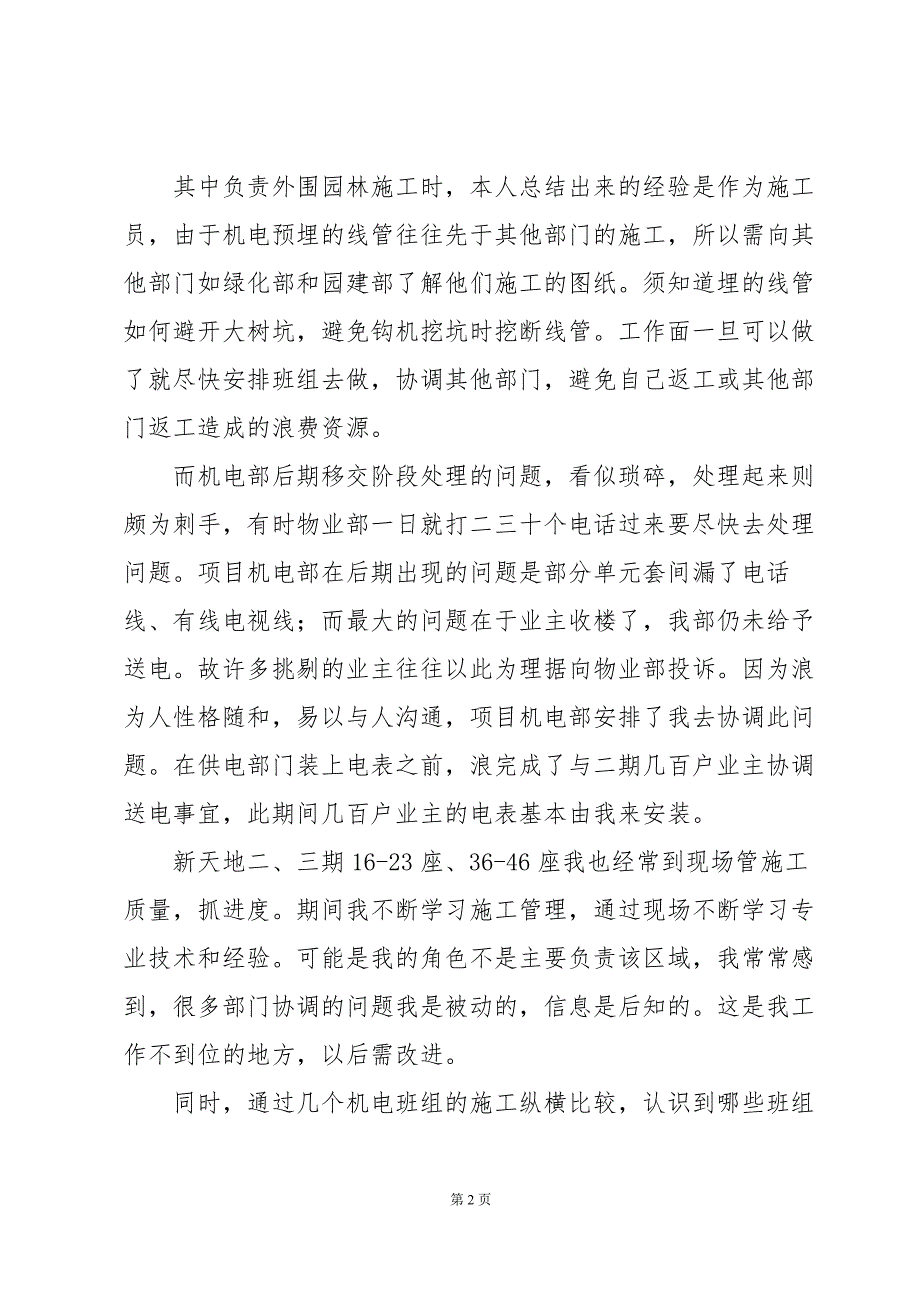 其中负责外围园林施工时，本人总结出来的经验是作为施工
员，由于机电预埋的线管往往先于其他部门的施工，所以需向其
他部门如绿化部和园建部了解他们施工的图纸。须知道埋的线管
如何避开大树坑，避免钩机挖坑时挖断线管。工作面一旦可以做
了就尽快安排班组去做，协调其他部门，避免自己返工或其他部
门返工造成的浪费资源。
而机电部后期移交阶段处理的问题，看似琐碎，处理起来则
颇为刺手，有时物业部一日就打二三十个电话过来要尽快去处理
问题。项目机电部在后期出现的问题是部分单元套间漏了电话
线、有线电视线；而最大的问题在于业主收楼了，我部仍未给予
送电。故许多挑剔的业主往往以此为理据向物业部投诉。因为浪
为人性格随和，易以与人沟通，项目机电部安排了我去协调此问
题。在供电部门装上电表之前，浪完成了与二期几百户业主协调
送电事宜，此期间几百户业主的电表基本由我来安装。
新天地二、三期 16-23 座、36-46 座我也经常到现场管施工
质量，抓进度。期间我不断学习施工管理，通过现场不断学习专
业技术和经验。可能是我的角色不是主要负责该区域，我常常感
到，很多部门协调的问题我是被动的，信息是后知的。这是我工
作不到位的地方，以后需改进。
同时，通过几个机电班组的施工纵横比较，认识到哪些班组
第 2 页